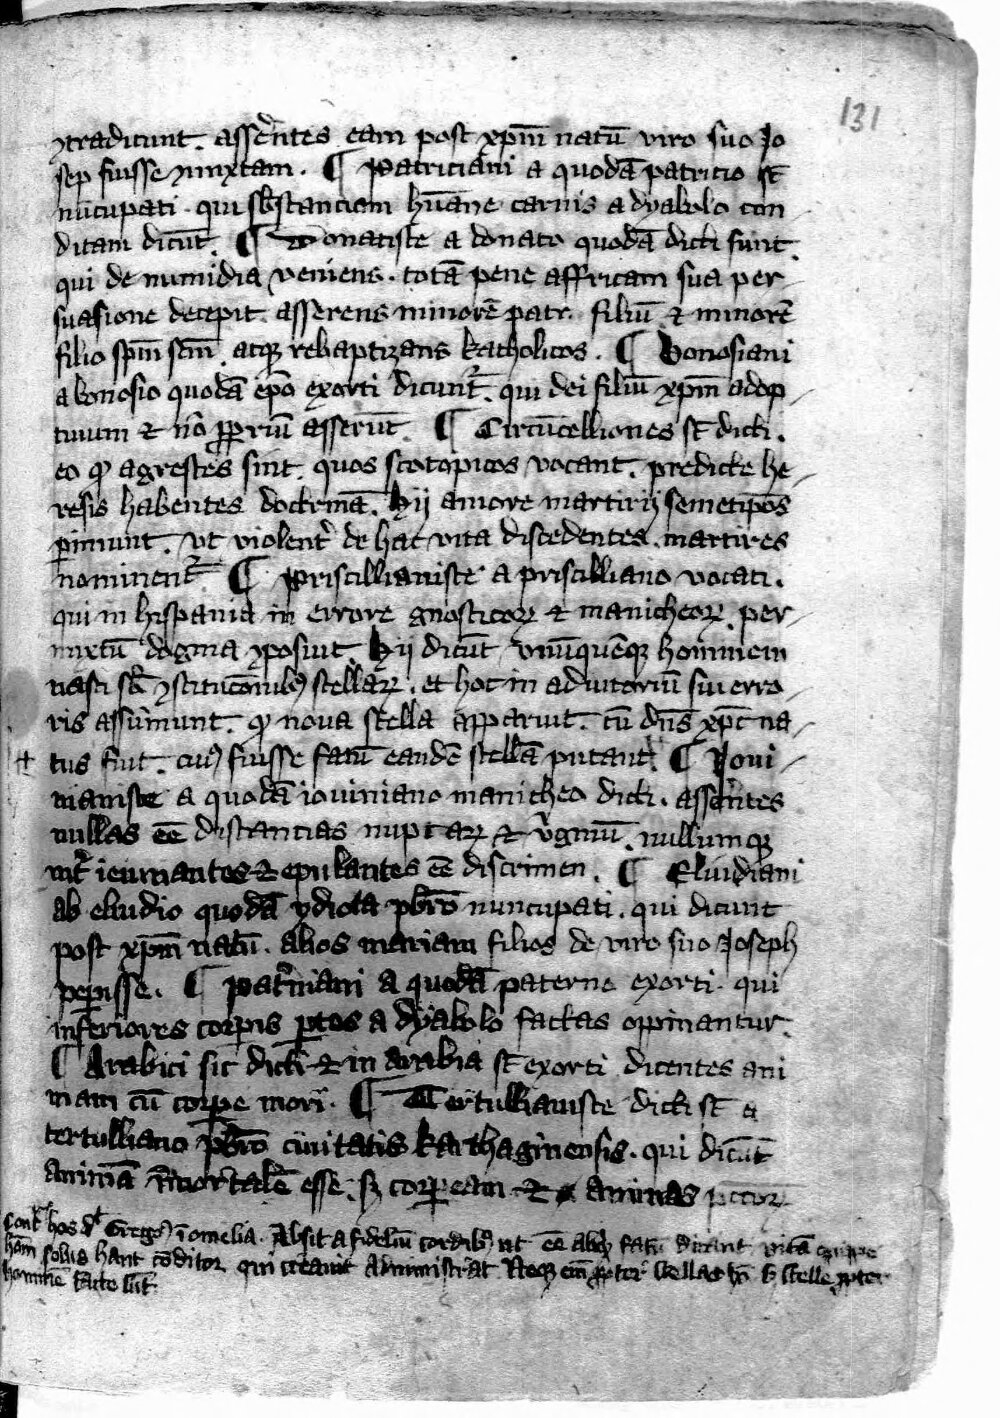 131
ꝯtradicunt. asserentes eam post xp̄m natū viro suo Jo
sep fuisse ꝯiunxtam. ¶ Patriciani a quodā patricio st̄
nūcupati. qui sb̄stanciam hūane carnis a dyabolo con
ditam dicūt. ¶ Donatiste a donato quodā dicti sunt.
qui de numidia veniens. totā pene affricam sua per-
suasione decepit. asserens minorē patr̄ filiū ⁊ minorē
filio sp̄m sc̄m. atqꝫ rebaptizans katholicos. ¶ Bonosiani
a bonosio quodā ep̄o exorti dicunt᷑. qui dei filiū xp̄m adop-
tiuum ⁊ nō ꝓpriū asserūt. ¶ Circūcelliones st̄ dicti.
eo ꝙ agrestes sint. quos scotopicos vocant. predicte he-
resis habentes doctrinā. hij amore martirij semetip̄os
ꝑimunt. vt violent᷑ de hac vita discedentes. martires
nominent᷑ ¶ Priscillianiste a priscilliano vocati.
qui in hispania in errore gnosticoꝝ ⁊ manicheoꝝ. per-
mixtū dogma ꝯposuit. hij dicūt vnūquēqꝫ hominem
nasci sb̄ ꝯstitucōnibꝰ stellaꝝ. et hoc in adiutoriū sui erro-
ris assūmunt. ꝙ nova stella apparuit. cū dn̄s xp̄c na-
+ tus fuit. cuiꝰ fuisse fatū eandē stellā putant. ¶ Joui-
nianiste a quodā iouiniano manicheo dicti. asserētes
nullas eē distancias nuptaꝝ ⁊ v̄ginū. nullumqꝫ
int᷑ ieiunantes ⁊ epulantes eē discrimen. ¶ Eluidiani
ab eluidio quodā ydiota pb̄ro nuncupati. qui dicunt
post xp̄m natū. alios mariam filios de viro suo Joseph
peꝑisse. ¶ Pat᷑niani a quodā paterno exorti. qui
inferiores corpis ꝑtes a dyabolo factas oppinantur.
¶ Arabici sic dicti ⁊ in arabia st̄ exorti dicentes ani
mam cū corpe mori. ¶ Tertullianiste dicti st̄ a
tertulliano pb̄ro ciuitatis karthaginensis. qui dicūt
animā īmortalē esse. sꝫ corpeam ⁊ animas pctoꝝ
Cont᷑ hos dt̄ Gregoꝰ ī omelia. Absit a fideliū cordibꝰ ut eē aliqꝫ fatū dicant. vitā quippe
hoīm solus hanc cōditor qui creauit aministrat. Neqꝫ em̄ ꝓpter stellas hō sꝫ stelle ꝓpter
hominē facte sūt.